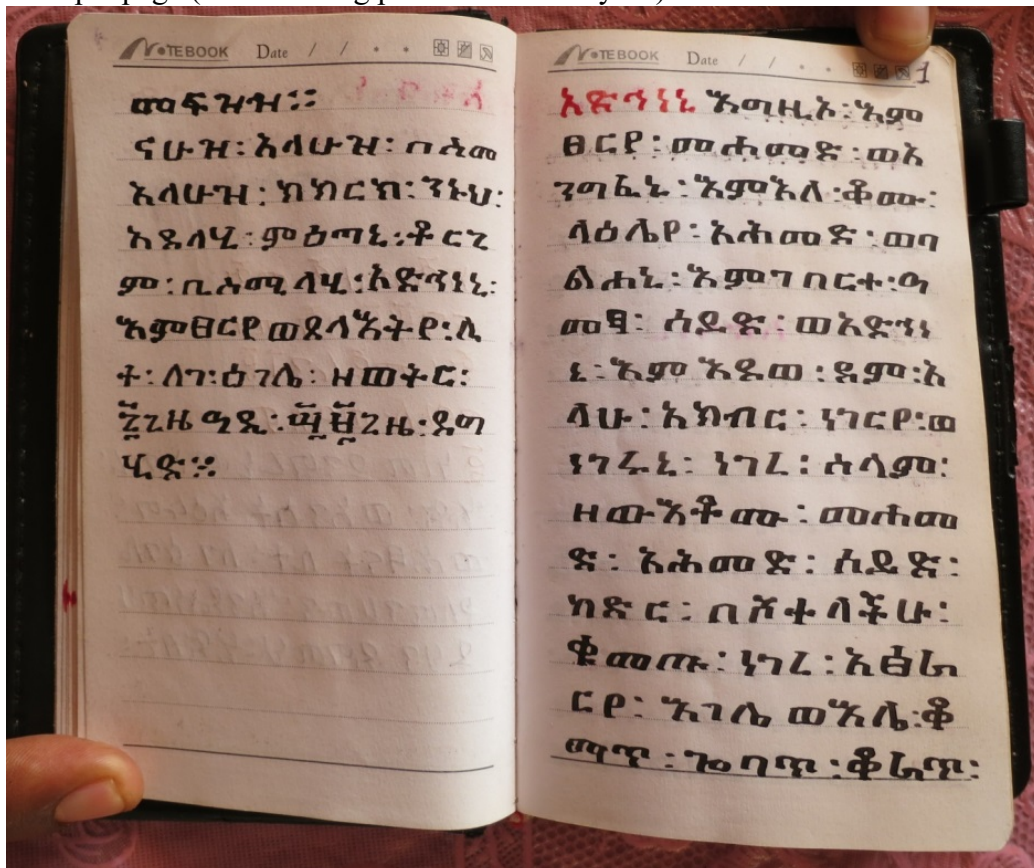 NOTEBOOK Date / /
መፍዝዝ፡፡
ናሁዝ፡ አላሁዝ፡
አላሁዝ፡ ክክርክ፡ ንኑህ፡
አደላሂ፡ ምዕጣኒ፡ቶርጊ
ም፡ቢስሚላሂ፡አድኅነኒ፡
እምፀርየ ወጸላእትየ፡ሊ
ተ፡ ለገ፡ዕገሌ፡ ዘወትር፡
፯ጊዜ ዓዲ፡ ደግ
ሂድ፨
NOTEBOOK Date / / 1
አድኅነኒ እግዚኦ፡እም
ፀርየ፡ መሐመድ፡ወአ
ንግፈኒ፡ እምእለ፡ቆሙ፡
ላዕሌየ፡ አሕመድ፡ወባ
ልሐኒ፡እምገበርተ፡ዓ
መፃ፡ ሰይድ፡ ወአድኅነ
ኒ፡እም እደወ፡ደም፡አ
ላሁ፡አክብር፡ ነገርየ፡ወ
ነገሩኒ፡ ነገረ፡ሰላም፡
ዘውእቶሙ፡ መሐመ
ድ፡ አሕመድ፡ ሰይድ፡
ከድር፡ በሽተላችሁ፡
ቁመጡ፡ ነገረ፡አፅራ
ርየ፡ እገሌ ወእሌ፡ቆ
ማጥ፡ጐባጥ፡ቆራጥ፡